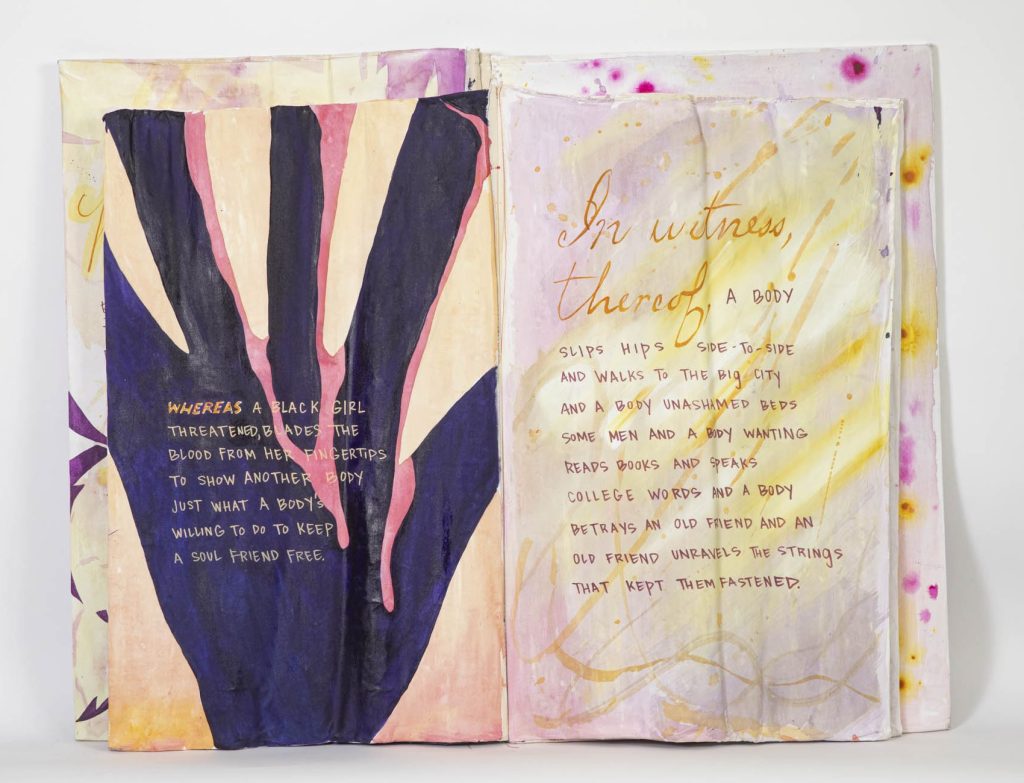 WHEREAS A BLACK GIRL
THREATENED, BLADES THE
BLOOD FROM HER FINGERTIPS
TO SHOW ANOTHER BODY
JUST WHAT A BODY'S
WILLING TO DO TO KEEP
A SOUL FRIEND FREE.
In witness,
thereof, A BODY
SLIPS HIPS SIDE-TO-SIDE
AND WALKS TO THE BIG CITY
AND A BODY UNASHAMED BEDS
SOME MEN AND A BODY WANTING
READS BOOKS AND SPEAKS
COLLEGE WORDS AND A BODY
BETRAYS AN OLD FRIEND AND AN
OLD FRIEND UNRAVELS THE STRINGS
THAT KEPT THEM FASTENED.